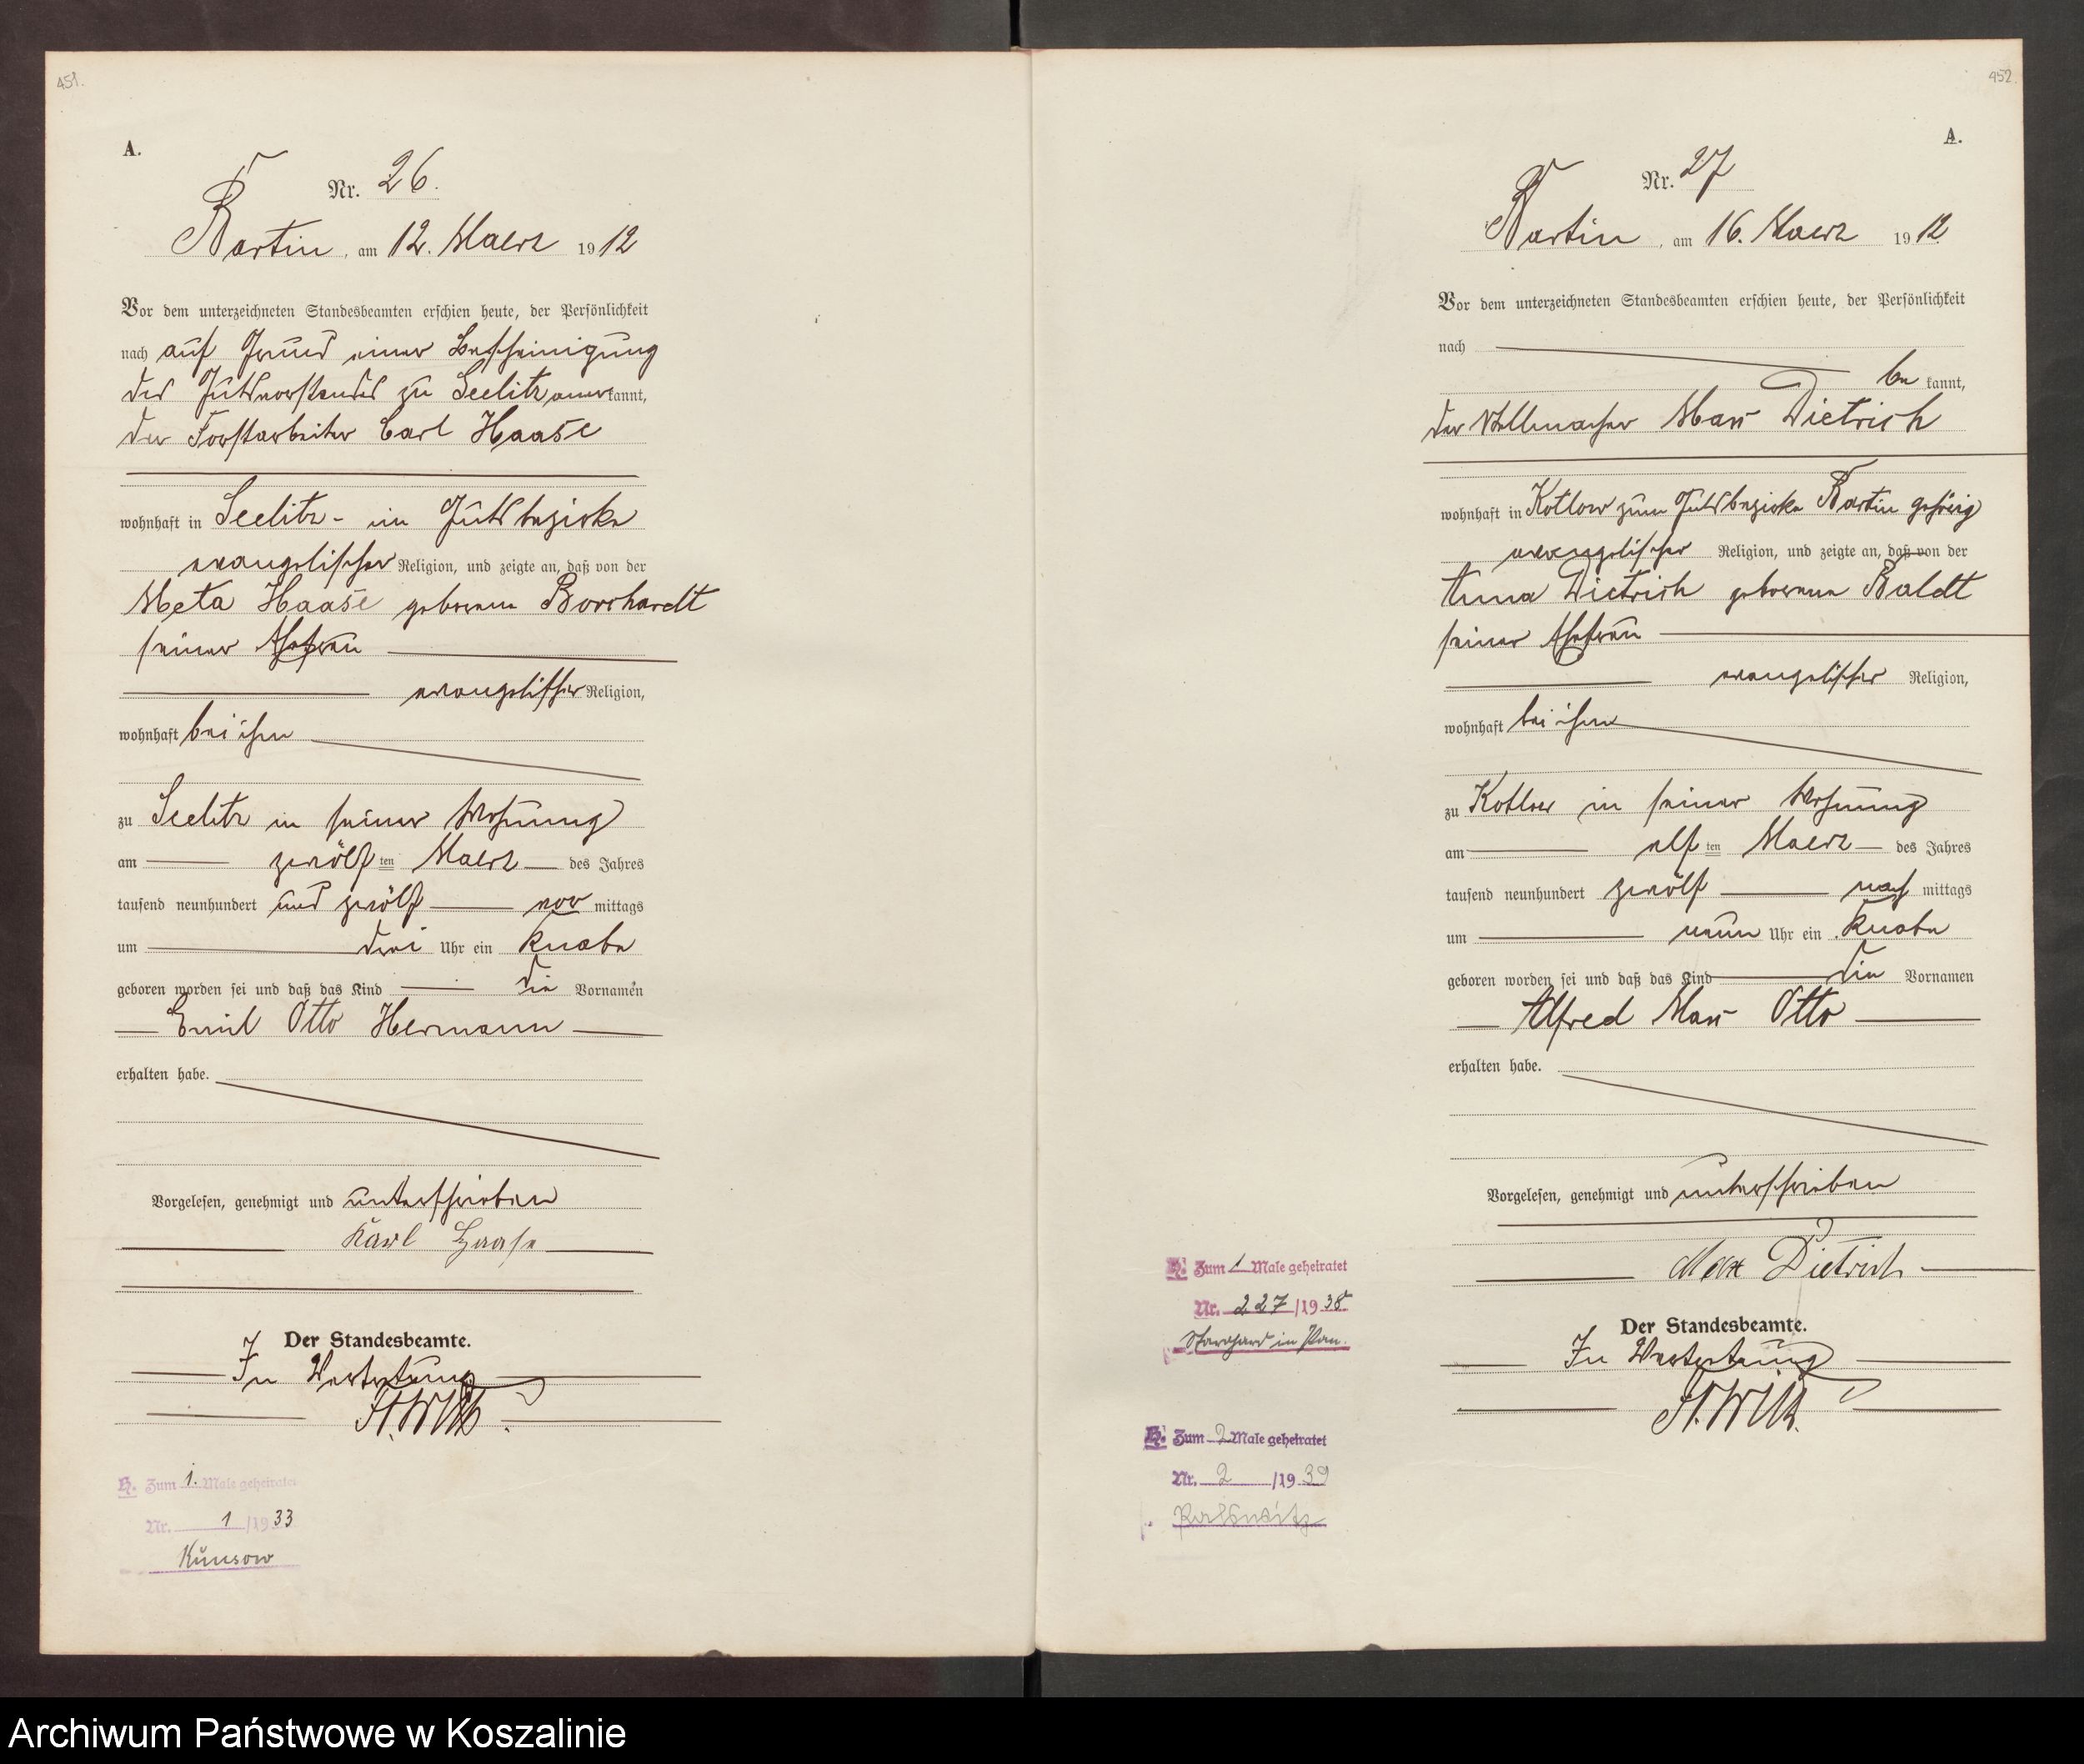 451.
A.
Nr. 26.
Bartin, am 12. Maerz 1912
Vor dem unterzeichneten Standesbeamten erschien heute, der Persönlichkeit
nach auf Grund einer Bescheinigung
des Gutsvorstandes zu Seelitz anerkannt,
der Forstarbeiter Carl Haase
wohnhaft in Seelitz - im Gutsbezirke
evangelischer Religion, und zeigte an, daß von der
Meta Haase geborenen Borchardt
seiner Ehefrau
evangelischer Religion,
wohnhaft bei ihm
zu Seelitz in seiner Wohnung
am zwölften Maerz des Jahres
tausend neunhundert und zwölf vormittags
um drei Uhr ein Knabe
geboren worden sei und daß das Kind die Vornamen
Emil Otto Hermann
erhalten habe.
Vorgelesen, genehmigt und unterschrieben
Karl Haase
Der Standesbeamte.
In Vertretung
H. Zum 1. Male geheiratet
Nr. 1/1933
Kunsow
452
A.
Nr. 27
Bartin, am 16. Maerz 1912.
Vor dem unterzeichneten Standesbeamten erschien heute, der Persönlichkeit
nach
bekannt,
der Stellmacher Max Dietrich
wohnhaft in Kotlow zum Gutsbezirke Bartin gehörig
evangelischer Religion, und zeigte an, daß von der
Anna Dietrich geborenen Baldt
seiner Ehefrau
evangelischer Religion,
wohnhaft bei ihm
zu Kotlow in seiner Wohnung
am elften Maerz des Jahres
tausend neunhundert zwölf nachmittags
um neun Uhr ein Knabe
geboren worden sei und daß das Kind die Vornamen
Alfred Max Otto
erhalten habe.
Vorgelesen, genehmigt und unterschrieben
Max Dietrich
Der Standesbeamte.
In Vertretung
H. Zum 1 Male geheiratet
Nr. 227/1938
Stargard in Pom.
H. Zum 2 Male geheiratet
Nr. 2/1939
Archiwum Państwowe w Koszalinie